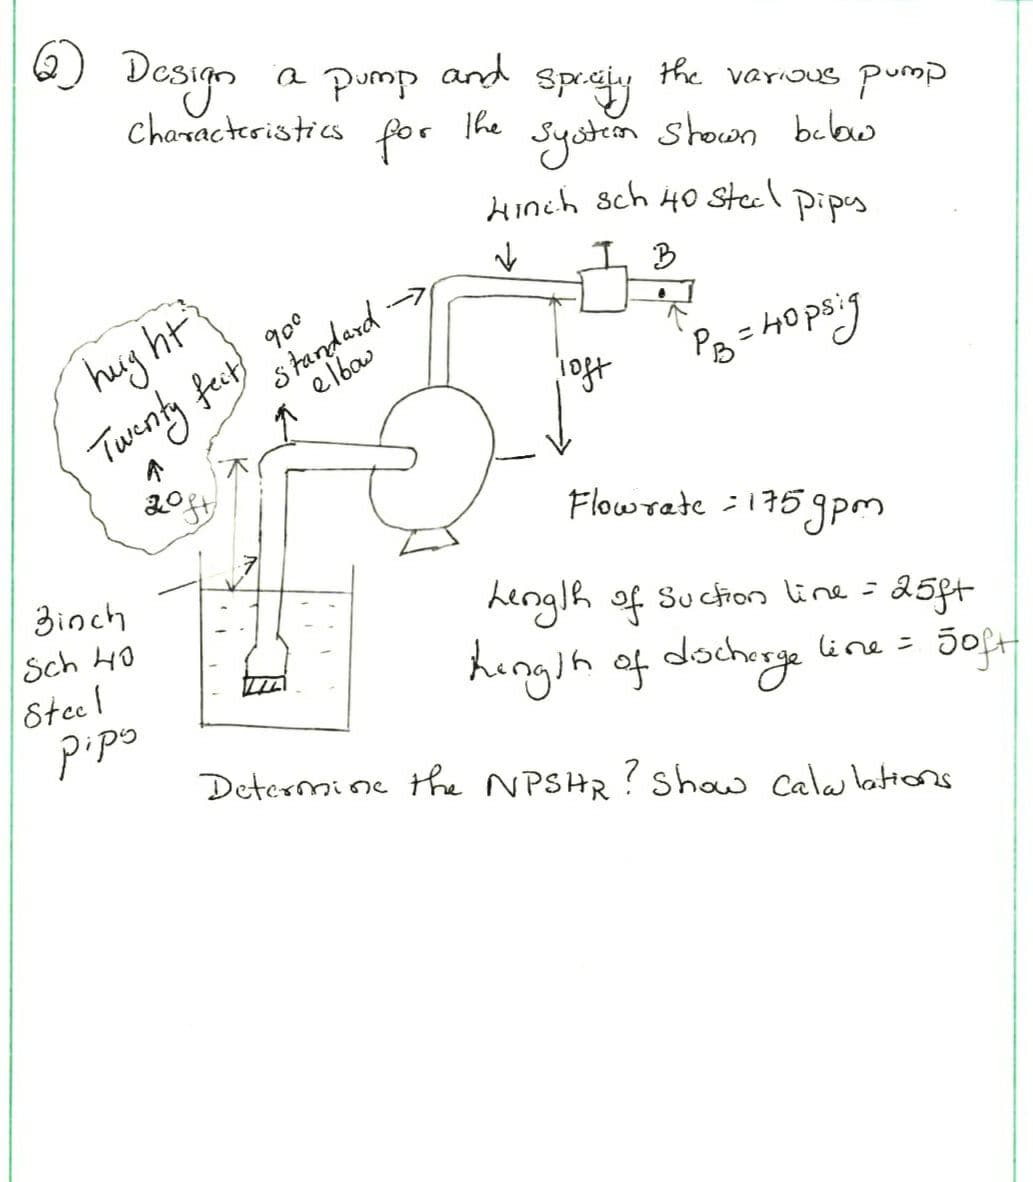 Q) Design a pump and specify the various pump
characteristics for the system shown below
4inch sch 40 steel pipes
B
PB = 40psig
height
Twenty feet
20ft
90°
standard
elbow
10ft
Flowrate = 175gpm
3inch
Sch 40
Steel
pipe
Length of suction line = 25ft
Length of discharge line = 50ft
Determine the NPSHR? Show calculations